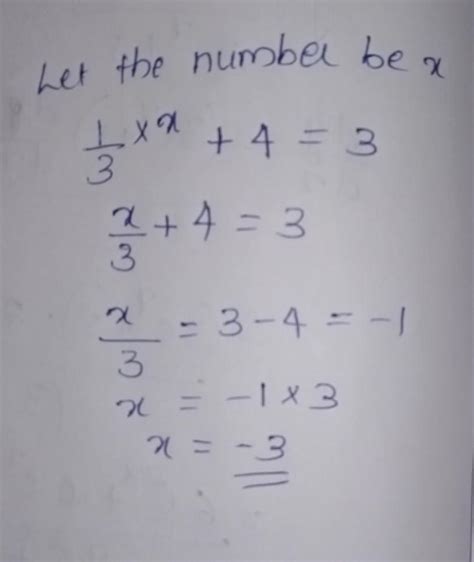 Let the number be x
1/3 × x + 4 = 3
x/3 + 4 = 3
x/3 = 3 - 4 = -1
x = -1 × 3
x = -3